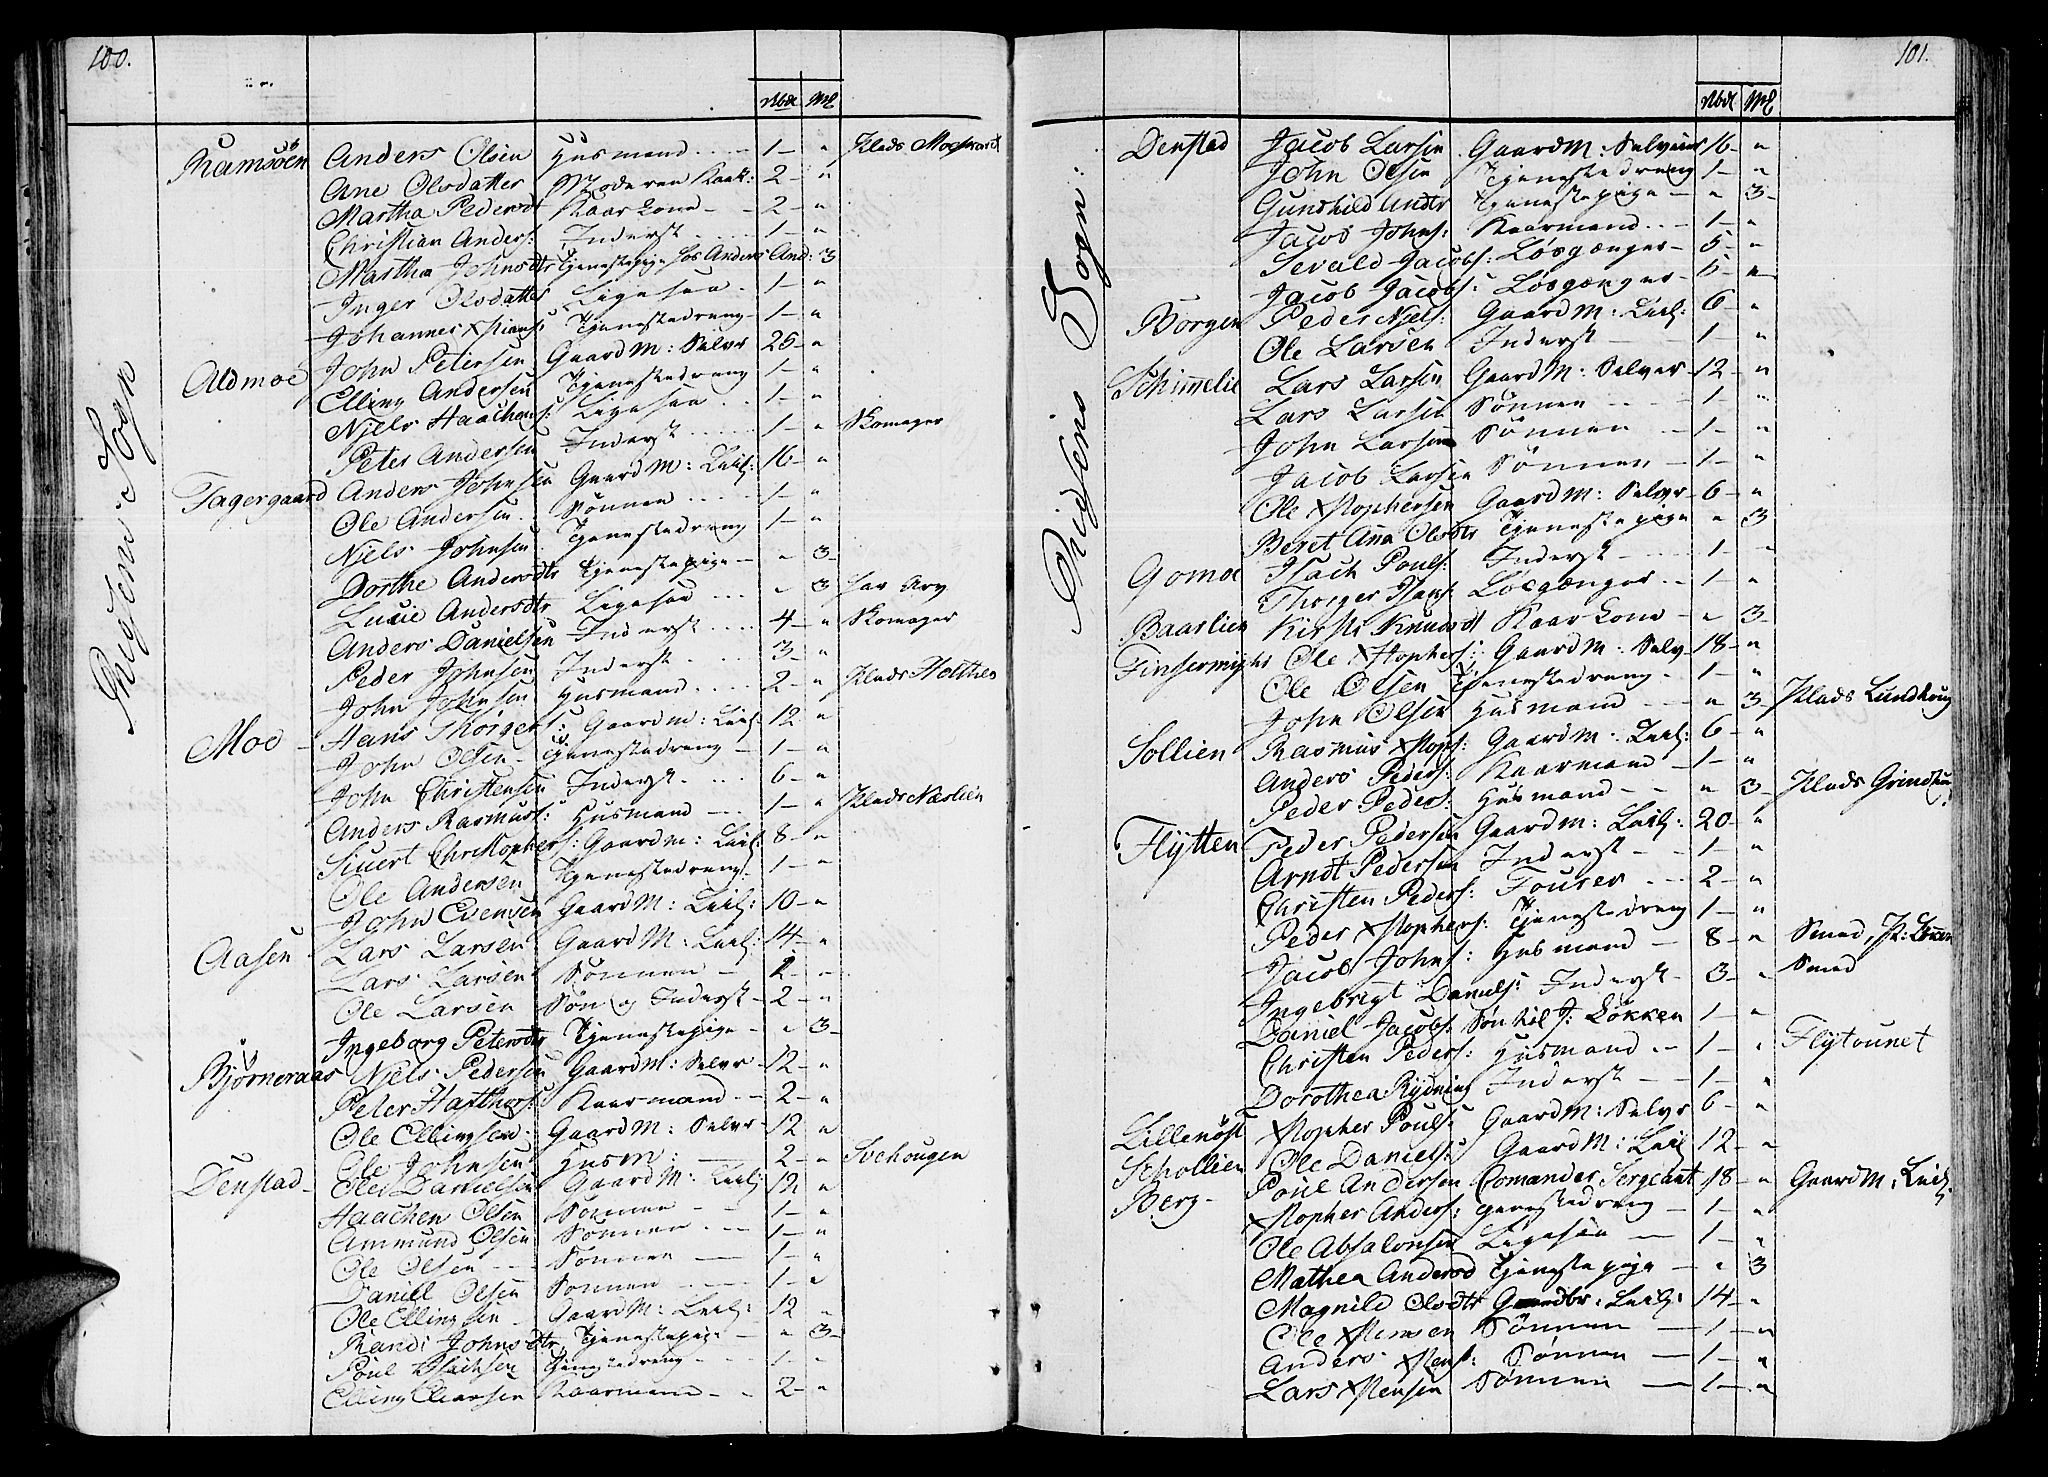 100.
Rbdl Mk
Ramsöen Anders Olsen Husmand 1 " Plads
Ane Olsdatter Moderen 2 "
Martha Pedersdt Kaarkone 2 "
Christian Anders: Inderst 1 "
Martha Johnsdtr Tjenestepige hos Anders And: 3
Inger Olsdatter Ligesaa 1 "
Johannes Xtians: Tjenestedreng 1 "
Aldmoe John Petersen Gaard M: Selvr 25 "
Elling Andersen Tjenestedreng 1 "
Niels Haachens: Ligesaa 1 "
Peter Andersen Inderst 1 " Skomager
Fagergaard Anders Johnsen Gaard M: Leil: 16 "
Ole Andersen Sönnen 1 "
Njels Johnsen Tjenestedreng 1 "
Dorthe Andersdtr Tjenestepige " 3
Lucie Andersdtr Ligesaa " 3 har Arv
Anders Danielsen Inderst 4 " Skomager
Peder Johnsen Inderst 3 "
John Johnsen Husmand 2 " Plads Holthen
Moe Hans Thörgers: Gaard M: Leil: 12 "
John Olsen Tjenestedreng 1 "
John Christensen Inderst 6 "
Anders Rasmus: Husmand 1 " Plads Næslien
Siuert Christophers: Gaard M: Leil: 8 "
Ole Andersen Tjenestedreng 1 "
John Evensen Gaard M: Leil: 10 "
Aasen Lars Larsen Gaard M: Leil: 14 "
Lars Larsen Sönnen 2 "
Ole Larsen Sön og Inderst 2 "
Ingeborg Petersdtr Tjenestepige " 3
Björneraas Njels Pedersen Gaard M: Selvr 12 "
Peter Hafthors: Kaarmand 2 "
Ole Ellingsen Gaard M: Selvr 12 "
Ole Johnsen Hus M: 2 " Svehougen
Denstad Ole Danielsen Gaard M: Leil: 12 "
Haachen Olsen Sönnen 1 "
Ammund Olsen Sönnen 1 "
Ole Olsen Sönnen 1 "
Daniel Olsen Sönnen 1 "
Ole Ellingsen Gaard M: Leil: 12 "
Randi Johnsdtr Tjenestepige " 3
Poul Isachsen Tjenestedreng 1 "
Elling Kaarmand 2 "
101.
Rbdl Mk
Denstad Jacob Larsen Gaard M: Selveier 16 "
John Olsen Tjenestedreng 1 "
Gunhild Andtr Tjenestepige " 3
Jacob Johns: Kaarmand 1 "
Sevald Jacobs: Løsgænger 5 "
Jacob Jacobs: Løsgænger 5 "
Borgen Peder Njels: Gaard M: Leil: 6 "
Ole Larsen Inderst 1 "
Schimelie Lars Larsen Gaard M: Selver 12 "
Lars Larsen Sönnen 1 "
John Larsen Sönnen 1 "
Jacob Larsen Sönnen 1 "
Ole Xstophersen Gaard M: Selvr 6 "
Beret Ana Olsdtr Tjenestepige " 3
Gomoe Isach Pouls: Inderst 1 "
Thorger Isaas: Løsgænger 1 "
Baarlien Kirsti Knudsdt Kaarkone " 3
Ole Xstophers: Gaard M: Selv 18 "
Ole Olsen Tjenestedreng 1 "
John Olsen Husmand " 3 Plads
Sollien Rasmus Xstops: Gaard M: Leil: 6 "
Anders Peders: Kaarmand 1 "
Peder Peders: Husmand " 3 Plads
Flÿtten Peder Pedersen Gaard M: Leil: 20 "
Arnt Pedersen Inderst 1 "
Christen Peders: Fourer 2 "
Peder Xstophers: Tjenestedreng 1 "
Jacob Johns: Husmand 8 " Smed, Pl: Løkken
Ingebrigt Daniels: Inderst 3 " Smed
Daniel Jacobs: Sön til J: Løkken 1 "
Christen Peders: Husmand 1 " Flÿtounet
Dorothea Rÿdning Inderst 1 "
Lillenöst Xstopher Pouls: Gaard M: Selvr 6 "
Schollien Ole Daniels: Gaard M: Leil 12 "
Berg Poul Andersen Comander Sergeant 18 " Gaard M: Leil:
Xstopher Anders: Tjenestedreng 1 "
Ole Absalonsen Ligesaa 1 "
Mathea Andersd Tjenestepige " 3
Magnild Olsdtr Leil: 14 "
Ole Xstensen Sönnen 1 "
Anders Xstens: Sönnen 1 "
Lars Xstensen Sönnen 1 "